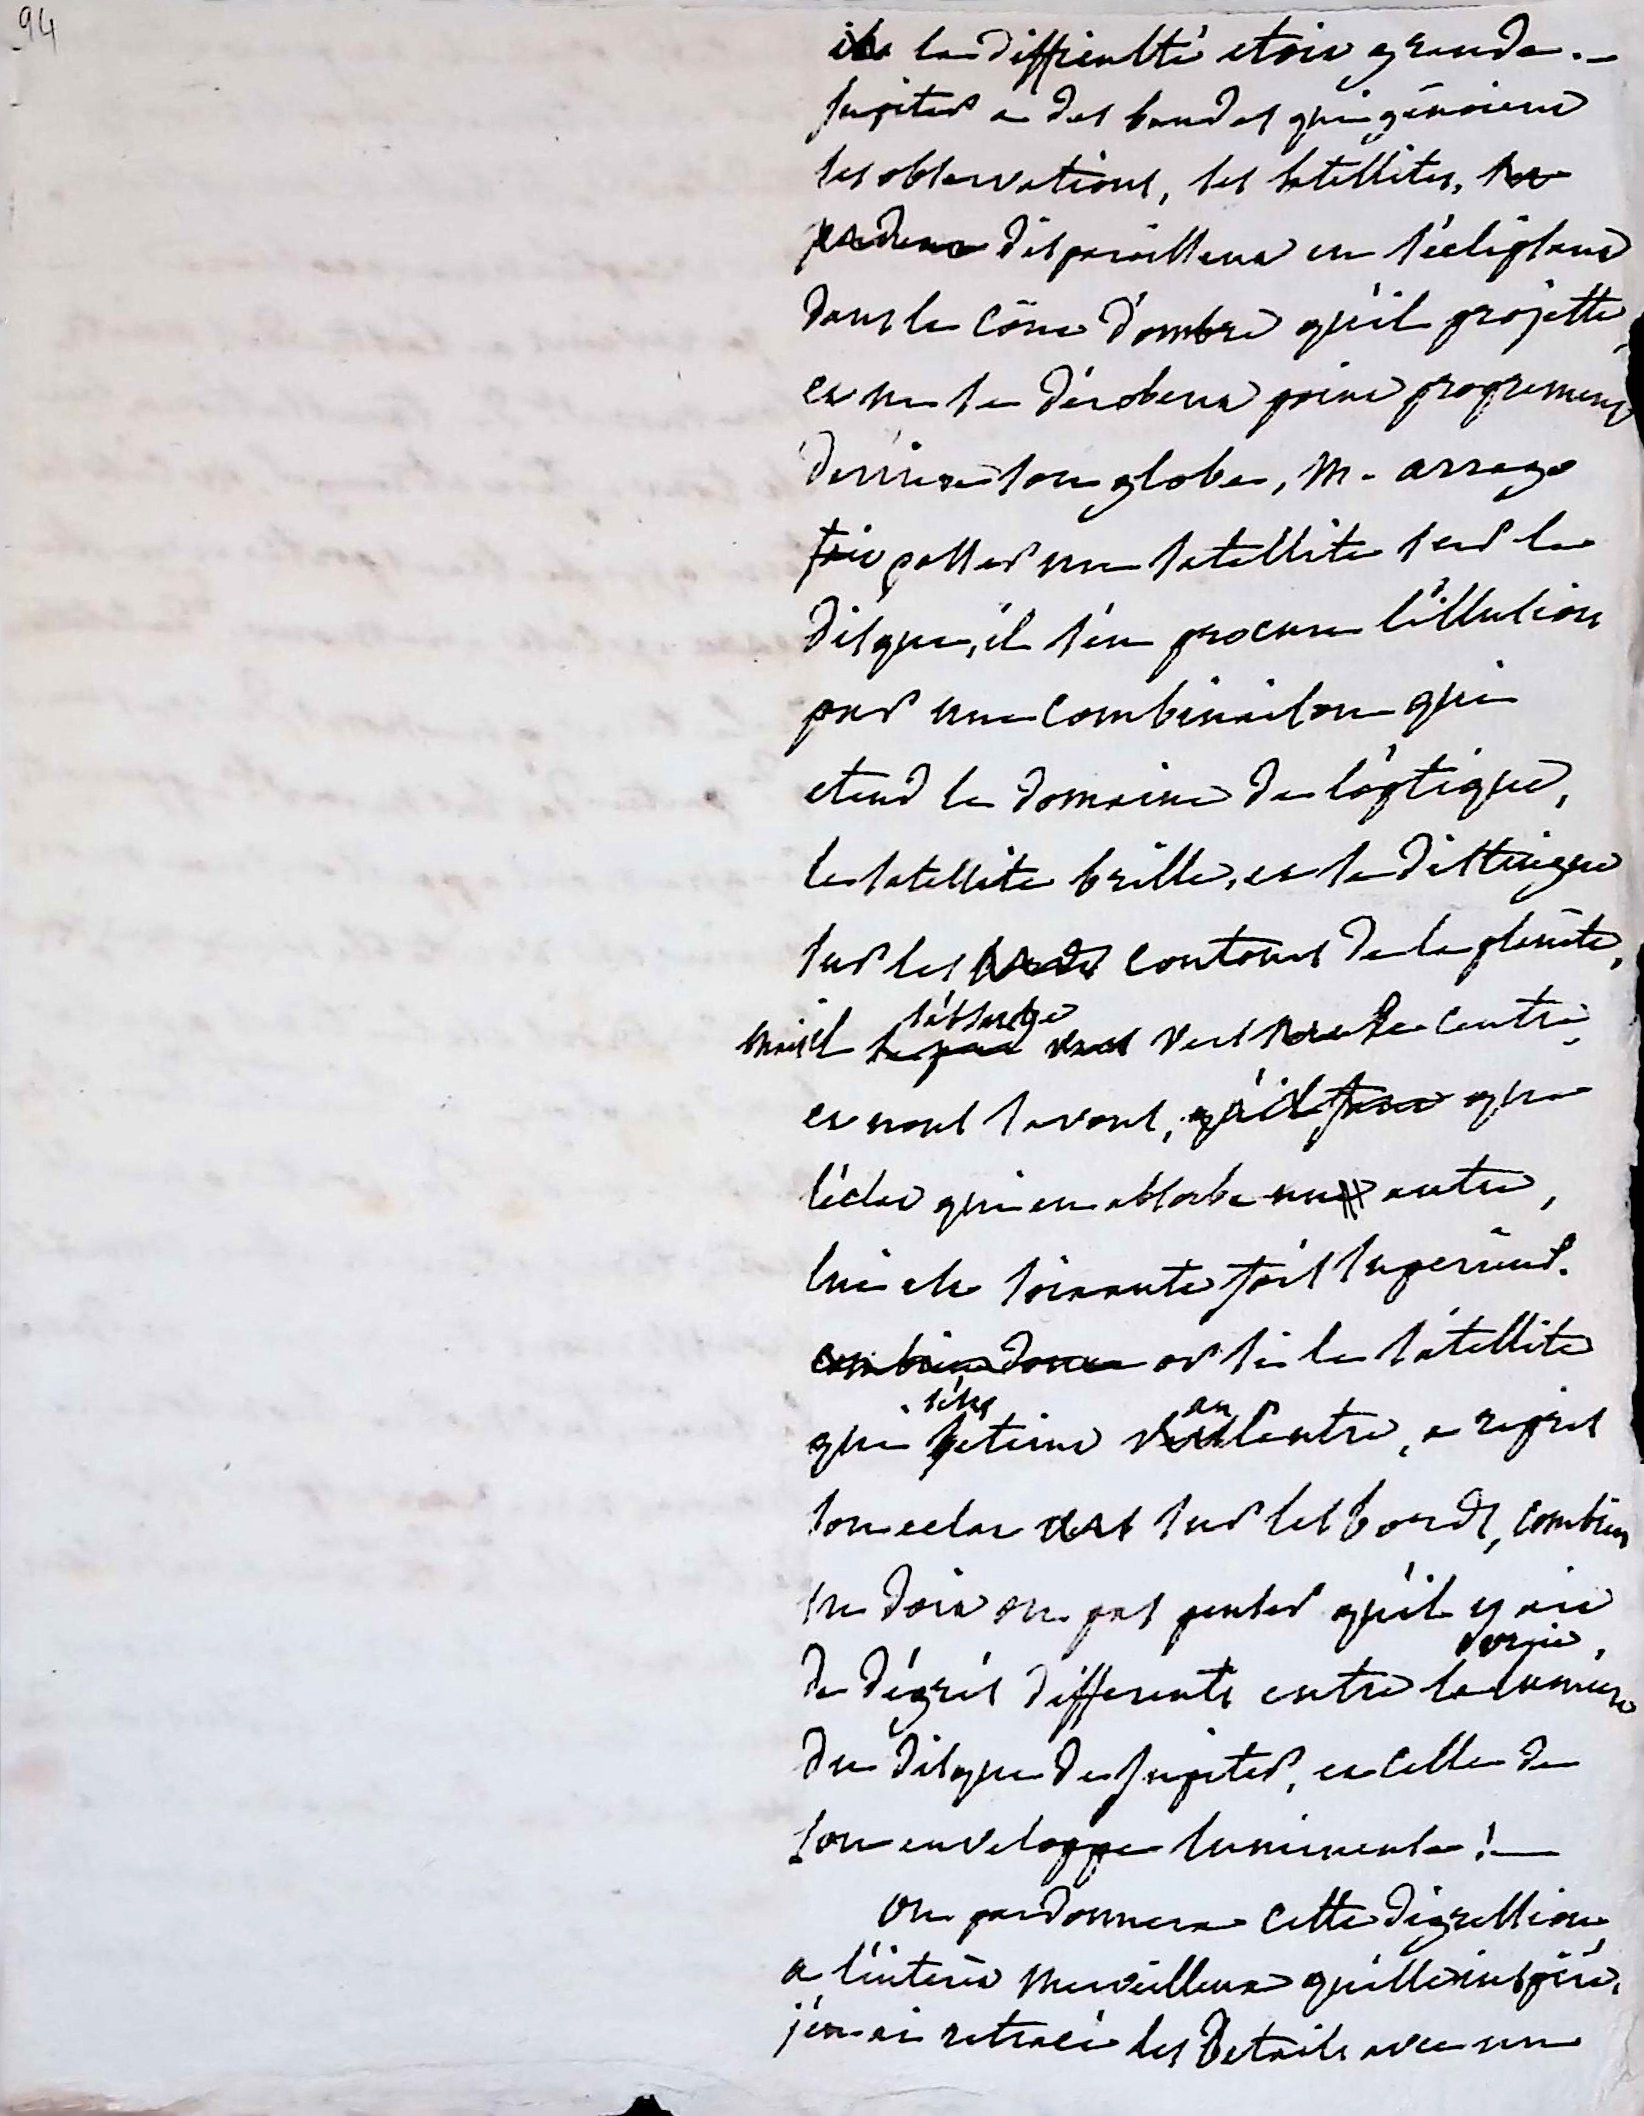 94
la difficulté etoit grande. —
Jupiter a des bandes qui génoient
les observations, ses satellites,
disparoissent en s'éclipsant
dans le cône d'ombre qu'il projette,
et ne se dérobent point proprement
derriere son globe, M. arrago
fait passer un satellite sur le
disque, il s'en procure l'illusion
par une combinaison qui
etend le domaine de l'optique,
le satellite brille, et se distingue
sur les bords contours de la planète,
s'absorbe
mais il se perd vers vers le centre,
et nous savons, qu'il faut que
l'éclat qui en absorbe un autre,
lui est soixante fois superieur.
combien donc or si le satellite
s'est au
que centre, a repris
son eclat vers sur les bords, combien
ne doit on pas penser qu'il y ait
vraie,
de dégrés differents entre la lumiere
du disque de Jupiter, et celle de
son enveloppe lumineuse! —
On pardonnera cette digression
a l'intérêt merveilleux qu'elle inspire,
j'en ai retracé les details avec un